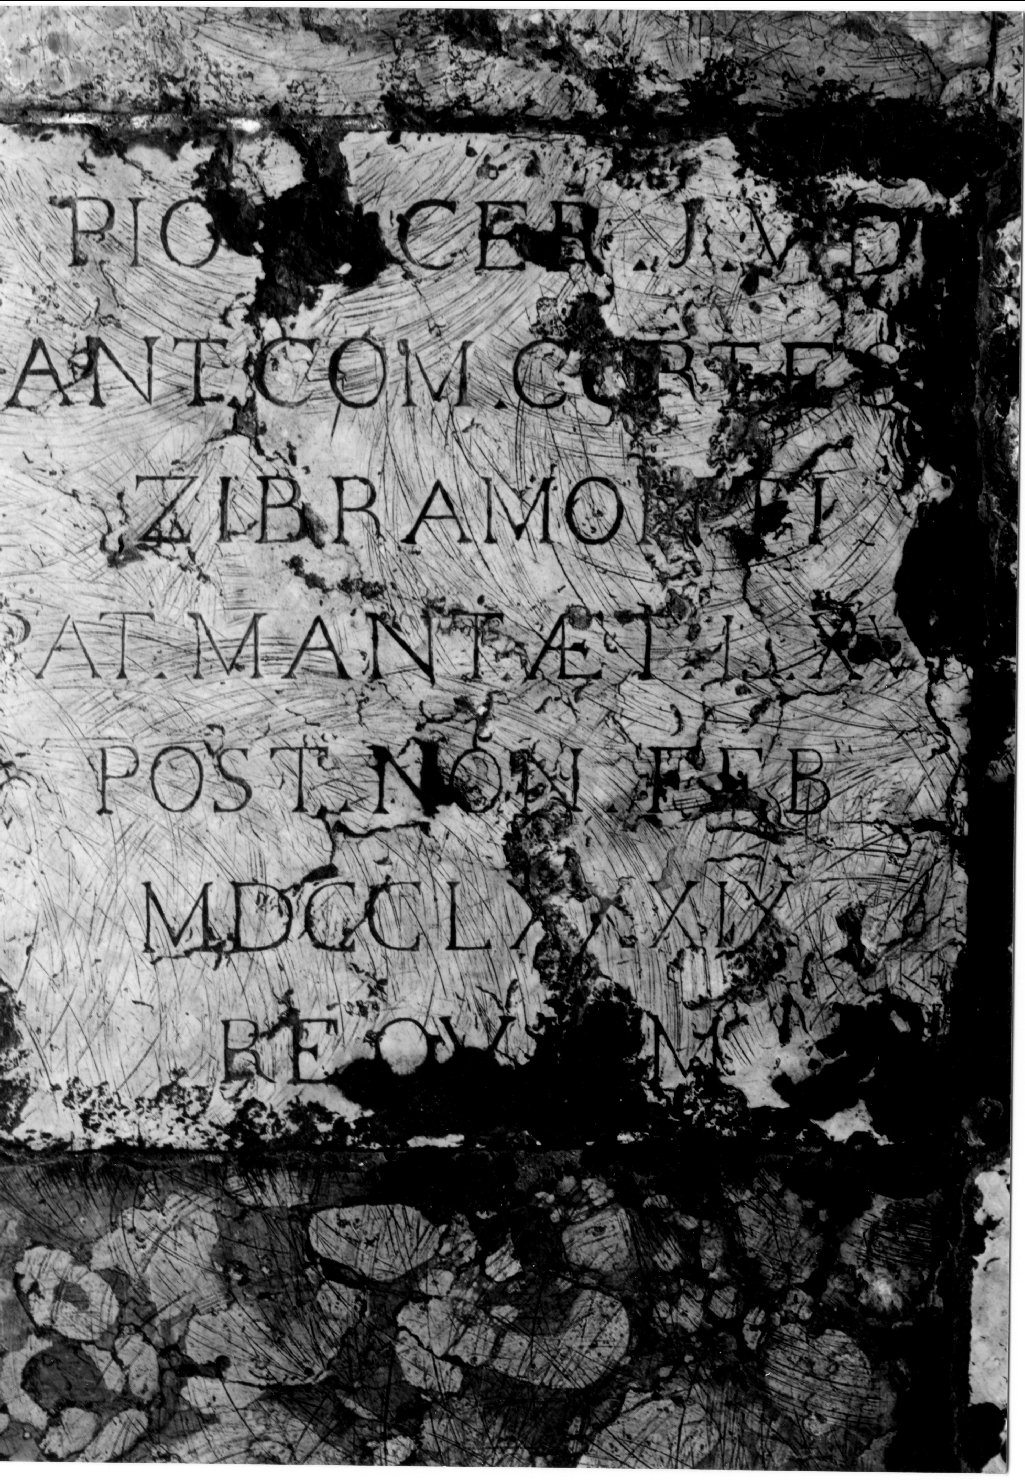 PIO CER. J. V. D
ANT. COM. CORTES
ZIBRAMONTI
PAT. MANT. ÆT. LXV
POST. NON FEB
MDCCLXXXIX
REQV M